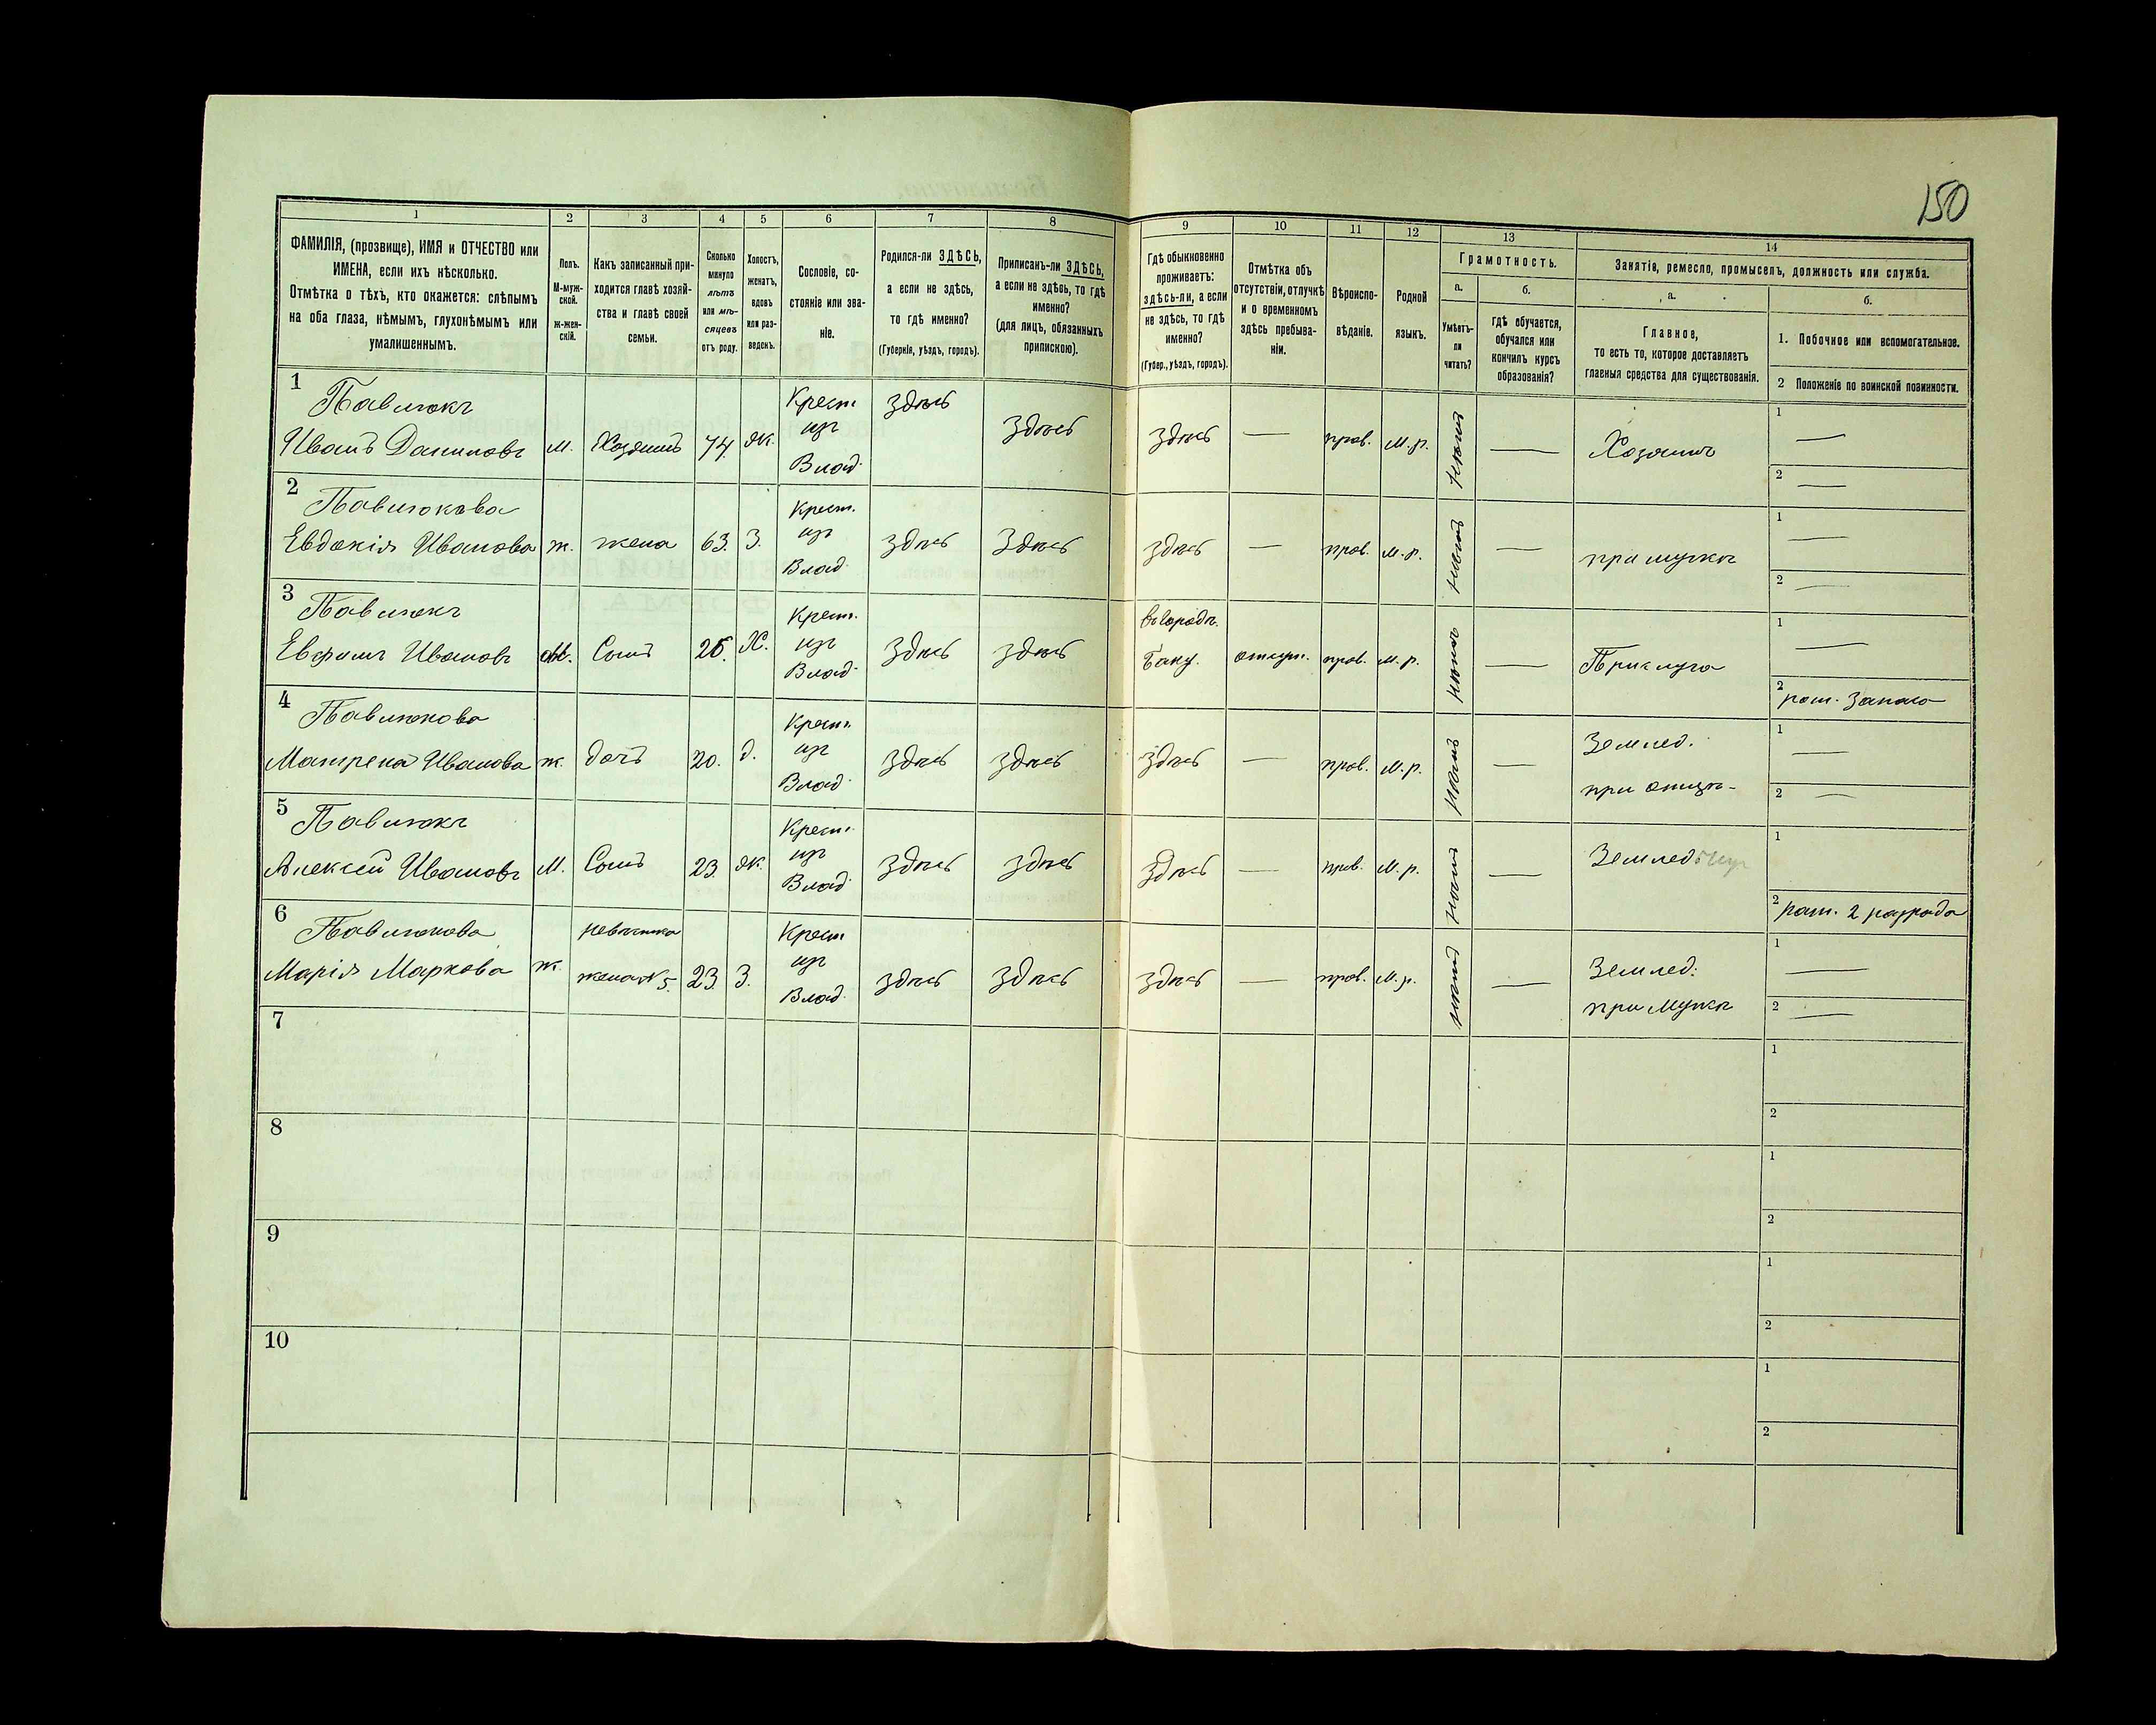 150
1 2 3 4 5 6 7 8 9 10 11 12 13 14
ФАМИЛІЯ, (прозвище), ИМЯ и ОТЧЕСТВО или
ИМЕНА, если ихъ нѣсколько.
Отмѣтка о тѣхъ, кто окажется: слѣпымъ
на оба глаза, нѣмымъ, глухонѣмымъ или
умалишеннымъ.
Полъ.
М-муж-
ской.
ж-жен-
скій.
Какъ записанный при-
ходится главѣ хозяй-
ства и главѣ своей
семьи.
Сколько
минуло
лѣтъ
или мѣ-
сяцевъ
отъ роду.
Холостъ,
женатъ,
вдовъ
или раз-
веденъ.
Сословіе, со-
стояніе или зва-
ніе.
Родился-ли ЗДѢСЬ,
а если не здѣсь,
то гдѣ именно?
(Губернія, уѣздъ, городъ).
Приписанъ-ли ЗДѢСЬ,
а если не здѣсь, то гдѣ
именно?
(для лицъ, обязанныхъ
припискою).
Гдѣ обыкновенно
проживаетъ:
здѣсь-ли, а если
не здѣсь, то гдѣ
именно?
(Губер., уѣздъ, городъ).
Отмѣтка объ
отсутствіи, отлучкѣ
и о временномъ
здѣсь пребыва-
ніи.
Вѣроиспо-
вѣданіе.
Родной
языкъ.
Грамотность.
а.
Умѣетъ-
ли
читать?
б.
гдѣ обучается,
обучался или
кончилъ курсъ
образованія?
Занятія, ремесло, промыселъ, должность или служба.
а.
Главное,
то есть то, которое доставляетъ
главныя средства для существованія.
б.
1. Побочное или вспомогательное.
2 Положеніе по воинской повинности.
1
Павлюкъ
Иванъ Даниловъ м. Хозяинъ 74 ж. Крест. изъ Влад. здѣсь здѣсь здѣсь — прав. м.р. — Хозяинъ
1 —
2 —
2
Павлюкова
Евдокія Иванова ж. жена 63. З. Крест. изъ Влад. здѣсь здѣсь здѣсь — прав. м.р. — при мужѣ
1 —
2 —
3
Павлюкъ
Евфимъ Ивановъ м. Сынъ Х. Крест. изъ Влад. здѣсь здѣсь въ городѣ Баку. отлуч. прав. м.р. — Прислуга
1 —
2 рат. запаса
4
Павлюкова
Матрена Иванова ж. дочь 20. д. Крест. изъ Влад. здѣсь здѣсь здѣсь — прав. м.р. — Землед. при отцѣ
1 —
2 —
5
Павлюкъ
Алексѣй Ивановъ м. Сынъ 23 ж. Крест. изъ Влад. здѣсь здѣсь здѣсь — прав. м.р. — Землед
1
2 рат. 2 разряда
6
Павлюкова
Марія Маркова ж. невѣстка жена № 5. 23. З. Крест. изъ Влад. здѣсь здѣсь здѣсь — прав. м.р. — Землед: при мужѣ
1 —
2 —
7
1
2
8
1
2
9
1
2
10
1
2